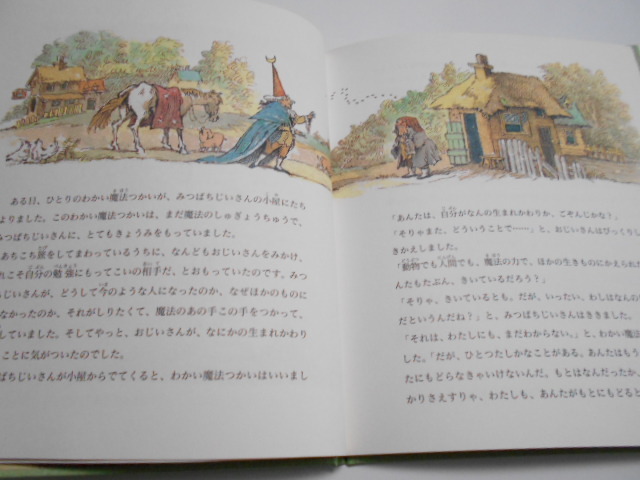 ある日、ひとりのわかい魔法つかいが、みつばちじいさんの小屋にたち
よりました。このわかい魔法つかいは、まだ魔法のしゅぎょうちゅうで、
みつばちじいさんに、とてもきょうみをもっていました。
あちこち旅をしてまわっているうちに、なんどもおじいさんをみかけ、
れこそ自分の勉強にもってこいの相手だ、とおもっていたのです。みつ
ばちじいさんが、どうして今のような人になったのか、なぜほかのものに
なかったのか、それがしりたくて、魔法のあの手この手をつかって、
していました。そしてやっと、おじいさんが、なにかの生まれかわり
ことに気がついたのでした。
ばちじいさんが小屋からでてくると、わかい魔法つかいはいいまし
「あんたは、自分がなんの生まれかわりか、ごぞんじかな？」
「そりゃまた、どういうことで……」と、おじいさんはびっくりし
きかえしました。
「動物でも人間でも、魔法の力で、ほかの生きものにかえられ
んたもたぶん、きいているだろう？」
「そりゃ、きいているとも。だが、いったい、わしはなんの
だというんだね？」と、みつばちじいさんはききました。
「それは、わたしにも、まだわからない。」と、わかい魔
した。「だが、ひとつたしかなことがある。あんたはもう
たにもどらなきゃいけないんだ。もとはなんだったか、
かりさえすりゃ、わたしも、あんたがもとにもどると